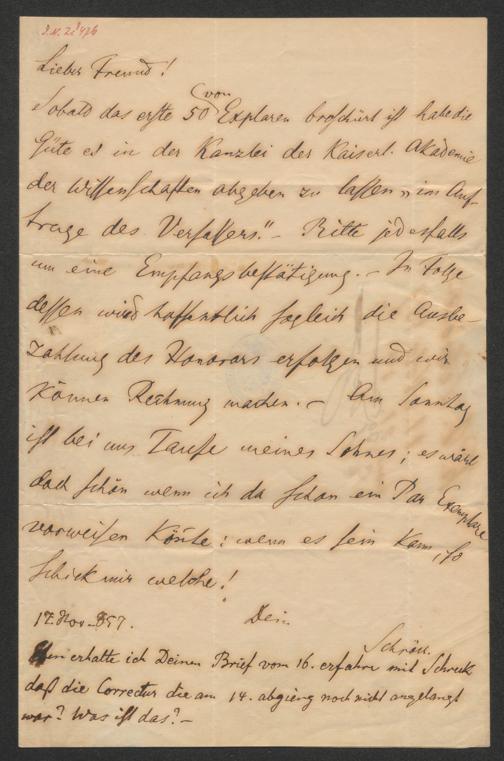 Lieber Freund!
Sobald das erste 50 von Explaren broschürt ist habe die
Güte es in der Kanzlei der Kaiserl. Akademie
der Wissenschaften abgeben zu lassen „im Auf-
trage des Verfassers." – Bitte jedesfalls
um eine Empfangsbestätigung. – In Folge
dessen wird hoffentlich sogleich die Ausbe-
zahlung des Honorars erfolgen und wir
können Rechnung machen. – Am Sonntag
ist bei uns Taufe meines Sohnes; es wäre
doch schön wenn ich da schon ein Par Exemplare
vorweisen könte; wenn es sein kann, so
schick mir welche!
17. Nov. 857. Dein
Schröer.
Eben erhalte ich Deinen Brief vom 16. erfahre mit Schreck
daß die Correctur die am 14. abgieng noch nicht angelangt
war? Was ist das? –